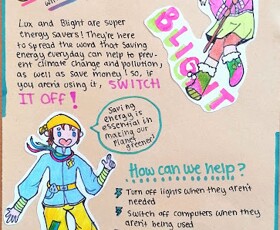 Lux and Blight are super
energy savers! They're here
to spread the word that saving
energy everyday can help to prev-
ent climate change and pollution,
as well as save money! So, if
you aren't using it, SWITCH
IT OFF!
BLIGHT
Saving
energy is
essential in
making our
planet
greener!
How can we help?
Turn off lights when they aren't
needed
Switch off computers when they
aren't being used